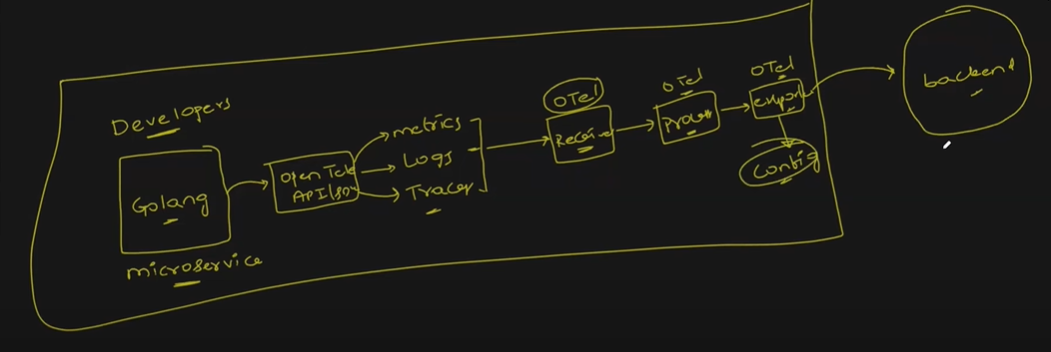 Developers
Golang
microservice
Open Tele
API/SDK
metrics
Logs
Traces
OTel
Receive
OTel
Process
OTel
export
Config
backend